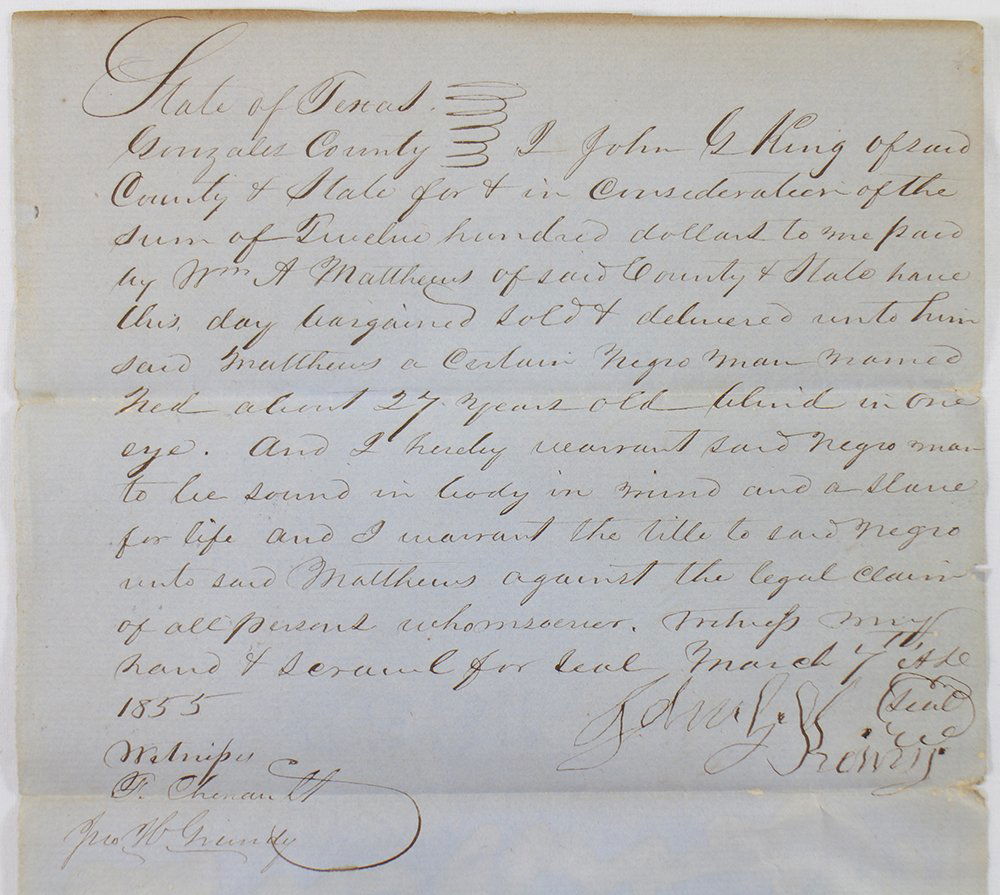 State of Texas.
Gonzales County I John G King of said
County & State for & in Consideration of the
sum of Twelve hundred dollars to me paid
by Wm A Matthews of said County & State have
this day bargained sold & delivered unto him
said Matthews a Certain Negro Man Named
Ned about 27 Years old blind in one
eye. And I hereby warrant said Negro man
to be sound in body in mind and a slave
for life and I warrant the title to said Negro
unto said Matthews against the legal claim
of all persons whomsoever. Witness my
hand & scrawl for seal March 7th AD
1855
John G. King Seal
Witness
F. Chenault
Jno W Grundy